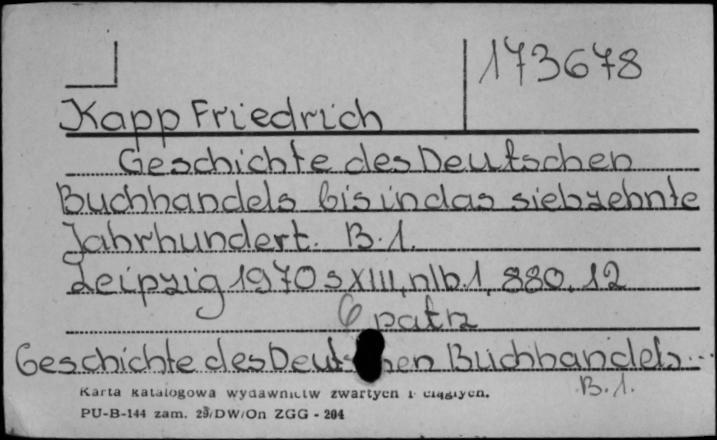 173678
Kapp Friedrich
Geschichte des Deutschen
Buchhandels bis in das siebzehnte
Jahrhundert. B.1.
Leipzig 1970 s XIII, nlb.1, 880, 12
patrz
Geschichte des Deutschen Buchhandels...
B.1.
Karta katalogowa wydawnictw zwartych i ciągłych.
PU-B-144 zam. 29/DW/On ZGG - 204